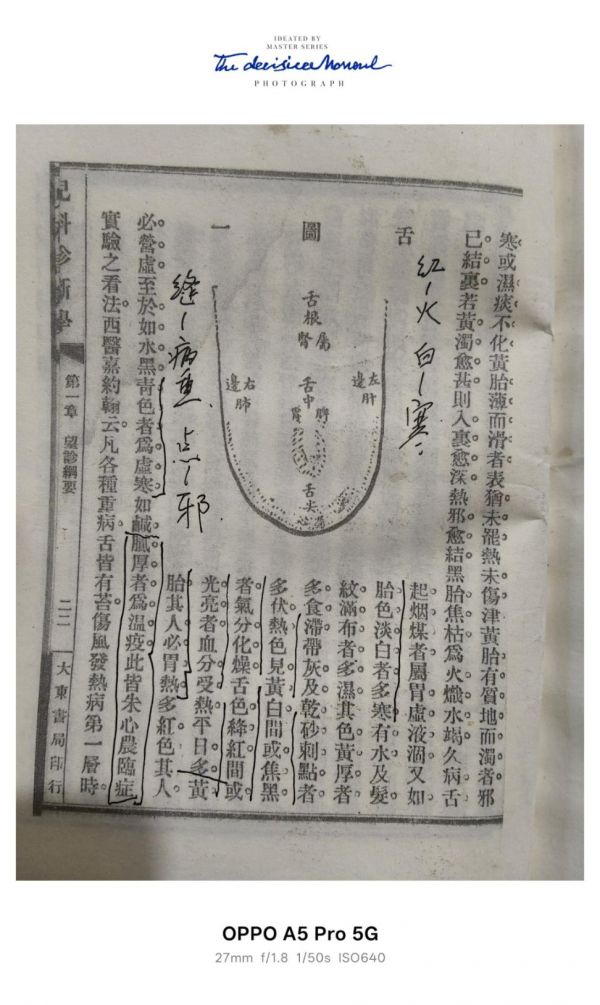 IDEATED BY
MASTER SERIES
PHOTOGRAPH
寒或濕痰不化黃胎薄而滑者表猶未罷熱未傷津黃胎有質地而濁者邪
已結裏若黃濁愈甚則入裏愈深熱邪愈結黑胎焦枯爲火熾水竭久病舌
起烟煤者屬胃虛液涸又如
胎色淡白者多寒有水及髮
紋滿布者多濕其色黃厚者
多食滯帶灰及乾砂刺點者
多伏熱色見黃白間或焦黑
者氣分化燥舌色絳紅間或
光亮者血分受熱平日多黃
胎其人必胃熱多紅色其人
舌圖一
舌根屬腎
左邊肝
右邊肺
舌中脾胃
舌尖
红火 白寒
缝病重 点邪
必營虛至於如水黑青色者爲虛寒如鹹
膩厚者爲温疫此皆朱心農臨症
實驗之看法西醫嘉約翰云凡各種重病舌皆有苔傷風發熱病第一層時
兒科診斷學
第一章 望診綱要
二二
大東書局印行
OPPO A5 Pro 5G
27mm f/1.8 1/50s ISO640